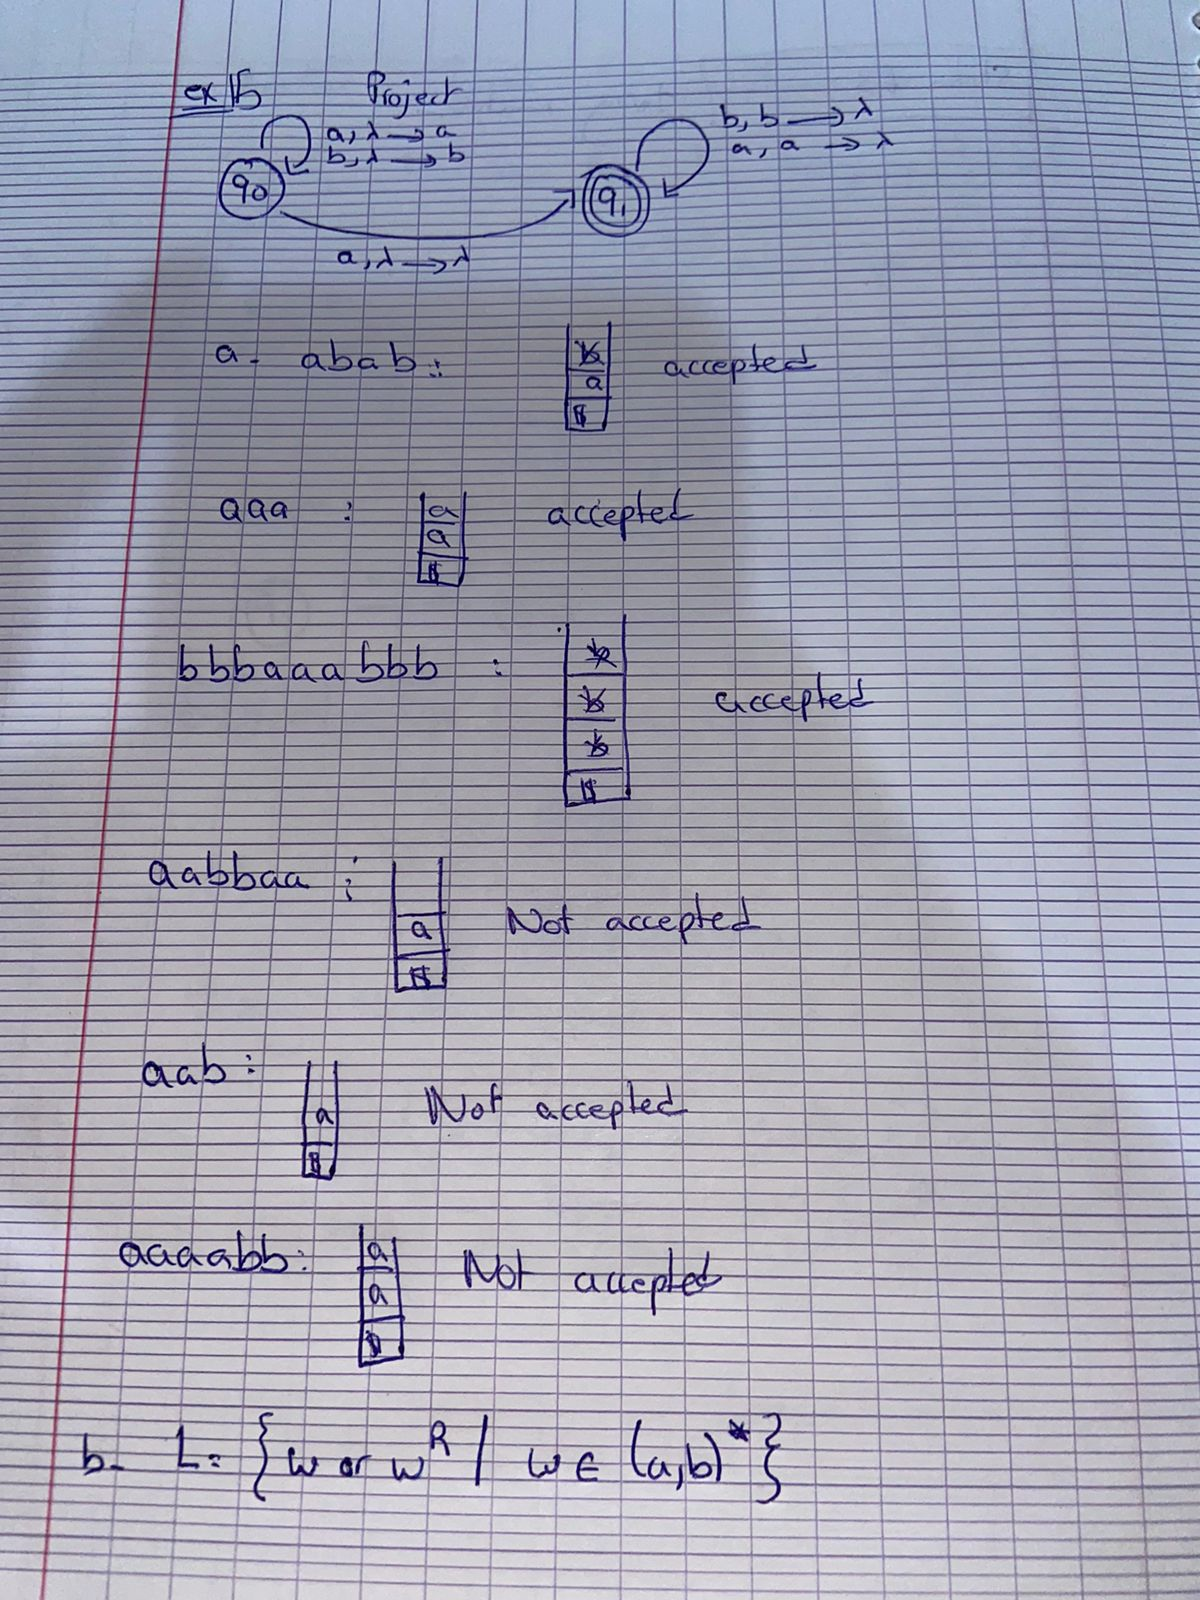 ex 15 Project
a, λ → a
b, λ → b
b, b → λ
a, a → λ
q0
q1
a, λ → λ
a- abab: b a $ accepted
aaa : a a $ accepted
bbbaaabbb : b b b $ accepted
aabbaa : a $ Not accepted
aab: a $ Not accepted
aaaabb: a a $ Not accepted
b- L= {w or w^R / w ∈ (a,b)*}